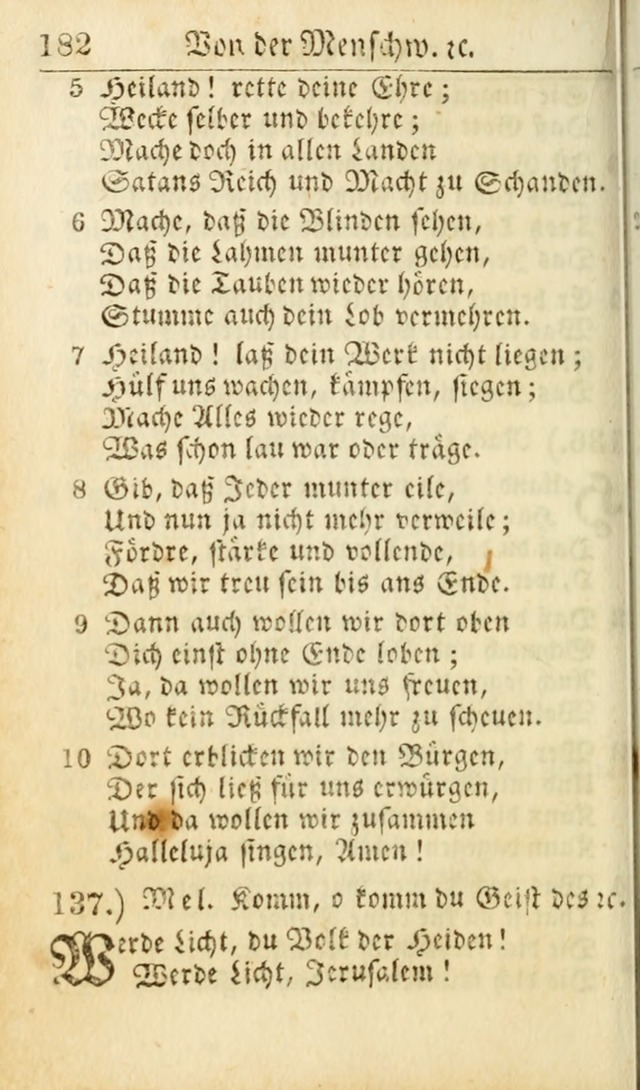 182 Von der Menschw. ꝛc.
5 Heiland! rette deine Ehre;
Wecke selber und bekehre;
Mache doch in allen Landen
Satans Reich und Macht zu Schanden.
6 Mache, daß die Blinden sehen,
Daß die Lahmen munter gehen,
Daß die Tauben wieder hören,
Stumme auch dein Lob vermehren.
7 Heiland! laß dein Werk nicht liegen;
Hülf uns wachen, kämpfen, siegen;
Mache Alles wieder rege,
Was schon lau war oder träge.
8 Gib, daß Jeder munter eile,
Und nun ja nicht mehr verweile;
Fördre, stärke und vollende,
Daß wir treu sein bis ans Ende.
9 Dann auch wollen wir dort oben
Dich einst ohne Ende loben;
Ja, da wollen wir uns freuen,
Wo kein Rückfall mehr zu scheuen.
10 Dort erblicken wir den Bürgen,
Der sich ließ für uns erwürgen,
Und da wollen wir zusammen
Halleluja singen, Amen!
137.) Mel. Komm, o komm du Geist des ꝛc.
Werde Licht, du Volk der Heiden!
Werde Licht, Jerusalem!